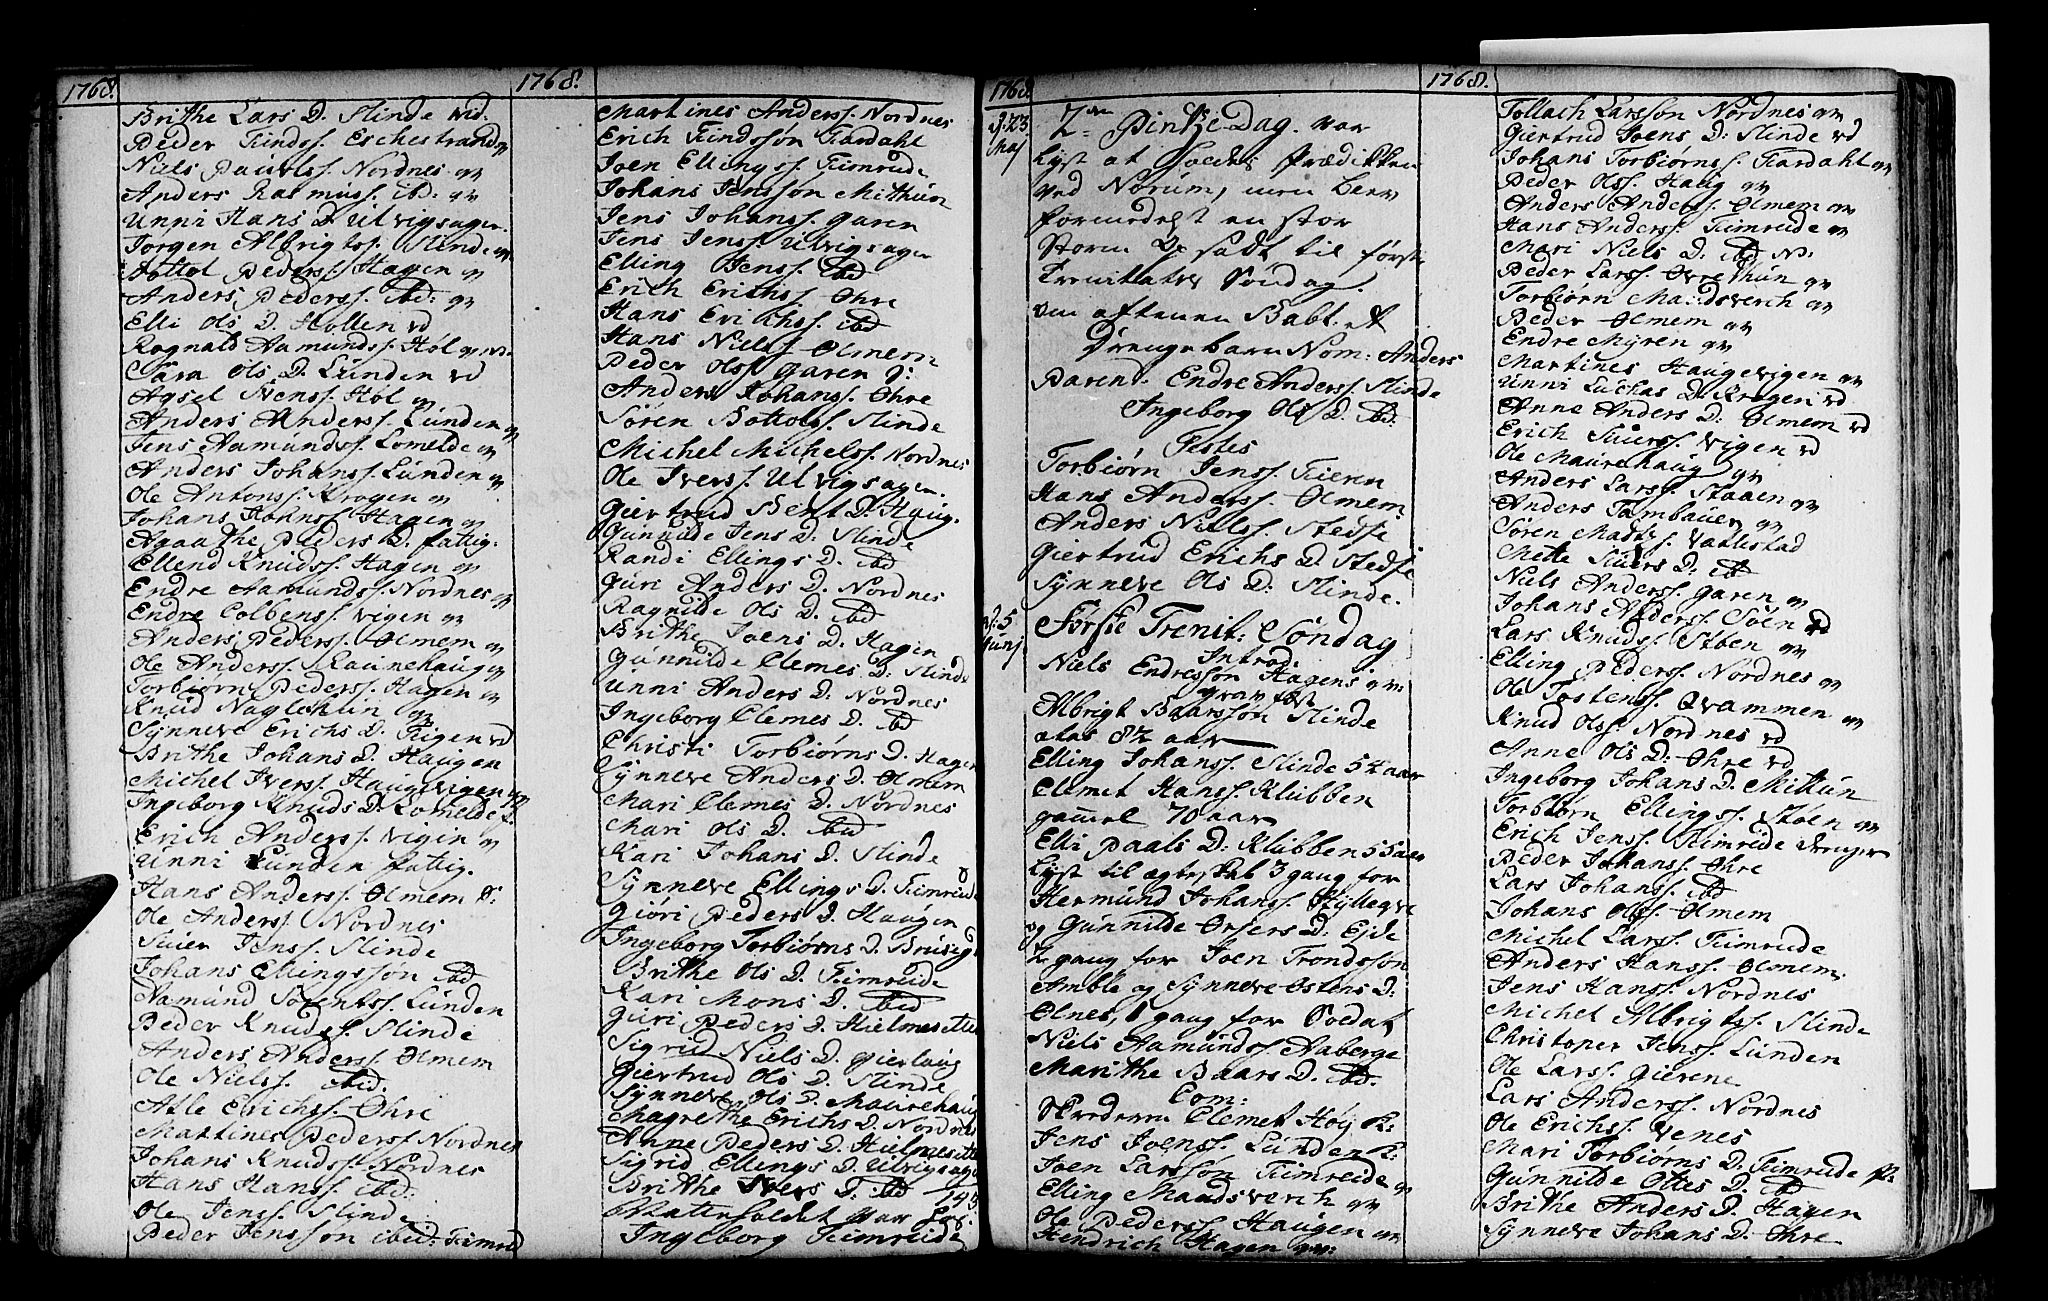 1768.
Brithe Lars D. Slinde vid.
Peder Findss. Eschestrand qv
Niels Pauelss. Nordnes qv
Anders Rasmuss. ibd: qv
Unni Hans D. Ulvigsager.
Jørgen Albrigtss. Slinde qv
Bottol Pederss. Hagen qv
Anders Pederss. ibd: qv
Elli Ols D. Hollen vd
Rognald Aamundss. Hol qv
Sara Ols D. Lunden vd
Agsel Jenss. Hol qv
Anders Anderss. Lunden qv
Jens Aamundss. Lomelde qv
Anders Johanss. Lunden qv
Ole Antonss. Krogen qv
Johans Johnss. Hagen qv
Agaathe Peders D. fattig.
Ellend Knudss. Hagen qv
Endre Aamundss. Nordnes qv
Endre Colbenss. Vigen qv
Anders Pederss. Olmem qv
Ole Anderss. Raanehaug qv
Torbiørn Pederss. Hagen qv
Knud Naglehun qv
Synneve Erichs D. Eigen vd
Brithe Johans D. Haugen
Michel Iverss. Haugevigen
Ingeborg Knuds D. Lomelde
Erich Anderss. Vigin qv
Unni Lunden fattig.
Hans Anderss. Olmem
Ole Anderss. Nordnes
Siuer Jenss. Slinde
Johans Ellingssøn ibd
Aamund Sørentss. Lunden
Peder Knudss. Slinde
Anders Anderss. Olmem
Ole Nielss. ibid.
Atle Erichss. Øhre
Mattines Pederss. Nordnes
Johans Knudss. Nordnes
Hans Hanss. ibd:
Ole Jenss. Slinde
Peder Jenssøn ibid: Fimreid
1768.
Martines Anderss. Nordnes
Erich Findssøn Fardahl
Joen Ellingss. Fimreide
Johans Jenssøn Mithun
Jens Johanss. Garen
Jens Jenss. Ulvigsagen
Elling Jenss. ibd
Erich Erichss. Øhre
Hans Erichss. ibd
Hans Nielss. Olmem
Peder Olss. Garen
Anders Johanss. Øhre
Søren Bottolss. Slinde
Michel Michelss. Nordnes
Ole Iverss. Ulvigsagen.
Giertrud Bent D. Haug.
Gunnilde Jens D. Slinde
Randi Ellings D. ibd
Guri Anders D. Nordnes
Ragnilde Ols D. ibd
Brithe Joens D. Hagen
Gunnilde Clemes D. Slinde
Unni Anders D. Nordnes
Ingeborg Clemes D. ibd
Christi Torbiørns D. Hagen
Synneve Anders D. Olmem
Mari Clemes D. Nordnes
Mari Ols D. ibid
Kari Johans D. Slinde
Synneve Ellings D. Fimreide
Giøri Peders D. Haugen
Ingeborg Torbiørns D. Brusegd
Brithe Ols D. Fimreide
Kari Mons D. ibd
Guri Peders D. Hielmesæter
Sigrid Niels D. Gierlaug
Giertrud Ols D. Slinde
Synneve Ols D. Maurehaug
Magrethe Erichs D. Nordnes
Anne Peders D. Hielmesæter
Sigrid Ellings D. Ulvigsagen
Brithe Ivers D. ibd
Ingeborg Fimreide
1768
d: 23
Maj
2den Pintze Dag. var
lyst at holdes Prædikken
ved Norum, men blev
formedelst en stor
Storm opsadt til første
Trenitatis Søndag.
om aftenen Babt. et
Drengebarn Nom: Anders
Paren: Endre Anderss. Slinde
Ingeborg Ols D. ibd.
Testes
Torbiørn Jenss. Eieren
Hans Anderss. Olmem
Anders Nielss. Stedje
Giertrud Erichs D. Stedje
Synneve Ols D: Slinde.
d: 5
Junj
Første Trenit: Søndag
Introd.
Niels Endressøn Hagens qv:
grav fæst
Albrigt Baarssøn Slinde
ætas 82 aar
Elling Johanss. Slinde 54 aar
Clemet Hanss. Klubben
gammel 70 aar
Elli Paals D: Klubben 55 aar
Lyst til Ægteskab 3 gang for
Hermund Johanss. Hyllegre
og Gunnilde Orsers D: Ejde
2 gang for Joen Trondssøn
Amble og Synneve Ostens D:
Olnes, 1 gang for Soldat
Niels Aamundss. Aaberge
Marithe Baars D. ibd.
Com:
Clemet Høy K:
Jens Joenss. Lunden K:
Joen Larssøn Fimreide qv
Elling Mandsverch qv
Ole Pederss. Haugen qv
Hendrich Hagen qv:
1768.
Tollach Larssøn Nordnes qv
Giertrud Joens D: Slinde vd
Johans Torbiørnss. Fardahl qv
Peder Olss. Haug qv
Anders Anderss. Olmem qv
Hans Anderss. Fimreide qv
Mari Niels D. ibd
Peder Larss. Øvrethun qv
Torbiørn Mandsverch qv
Peder Olmem qv
Endre Myren qv
Martines Haugevigen qv
Unni Luchas D. Krogen vd
Anne Anders D. Olmem vd
Erich Siuerss. Vigen vd
Ole Maurehaug qv
Anders Larss. Staaen qv
Anders Tambauer qv
Søren Madss. Vatlestad
Mette Siuers D. ibd
Niels Anderss. Garen qv
Johans Anderss. Søen vd
Lars Knudss. Støen qv
Elling Pederss. Nordnes qv
Ole Tostenss. Qvammen qv
Knud Olss. Nordnes vd
Anne Ols D. Øhre vd
Ingeborg Johans D. Mittun
Torbiørn Ellingss. Støen qv
Erich Jenss. Slimreide Drenger
Peder Johanss. Øhre
Lars Johanss. ibd
Johans Olss. Olmem
Michel Larss. Fimreide
Anders Hanss. Olmem
Jens Hanss. Nordnes
Michel Albrigtss. Slinde
Christoper Jenss. Lunden
Ole Larss. Gierene
Lars Anderss. Nordnes
Ole Erichss. Venes
Mari Torbiørns D. Fimreide
Gunnilde Ottes D. ibd
Brithe Anders D. Hagen
Synneve Johans D. Øhre